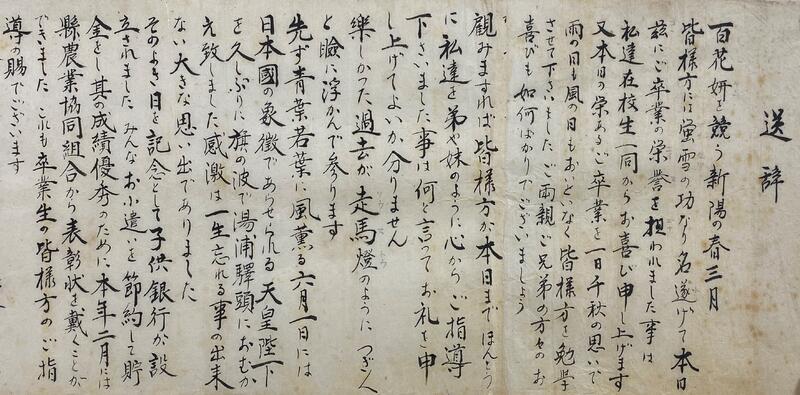 送辞
百花妍を競う新陽の春三月
皆様方には螢雪の功なり名遂げて本日
茲にご卒業の栄誉を担われました事は
私達在校生一同からお喜び申し上げます
又本日の栄あるご卒業を一日千秋の思いで
雨の日も風の日もおいといなく皆様方を勉学
させて下さいましたご両親ご兄弟の方々のお
喜びも如何ばかりでございましょう
顧みますれば皆様方が本日までほんとう
に私達を弟や妹のように心からご指導
下さいました事は何と言ってお礼を申
し上げてよいか分りません
楽しかった過去が走馬燈のようにつぎ〱
と瞼に浮かんで参ります
先ず青葉若葉に風薫る六月一日には
日本國の象徴であらせられる天皇陛下
を久しぶりに旗の波で湯浦驛頭におむか
え致しました感激は一生忘れる事の出来
ない大きな思い出でありました
そのよき日を記念として子供銀行が設
立されましたみんなお小遣いを節約して貯
金をし其の成績優秀のために本年二月には
縣農業協同組合から表彰状を戴くことが
できましたこれも卒業生の皆様方のご指
導の賜でございます